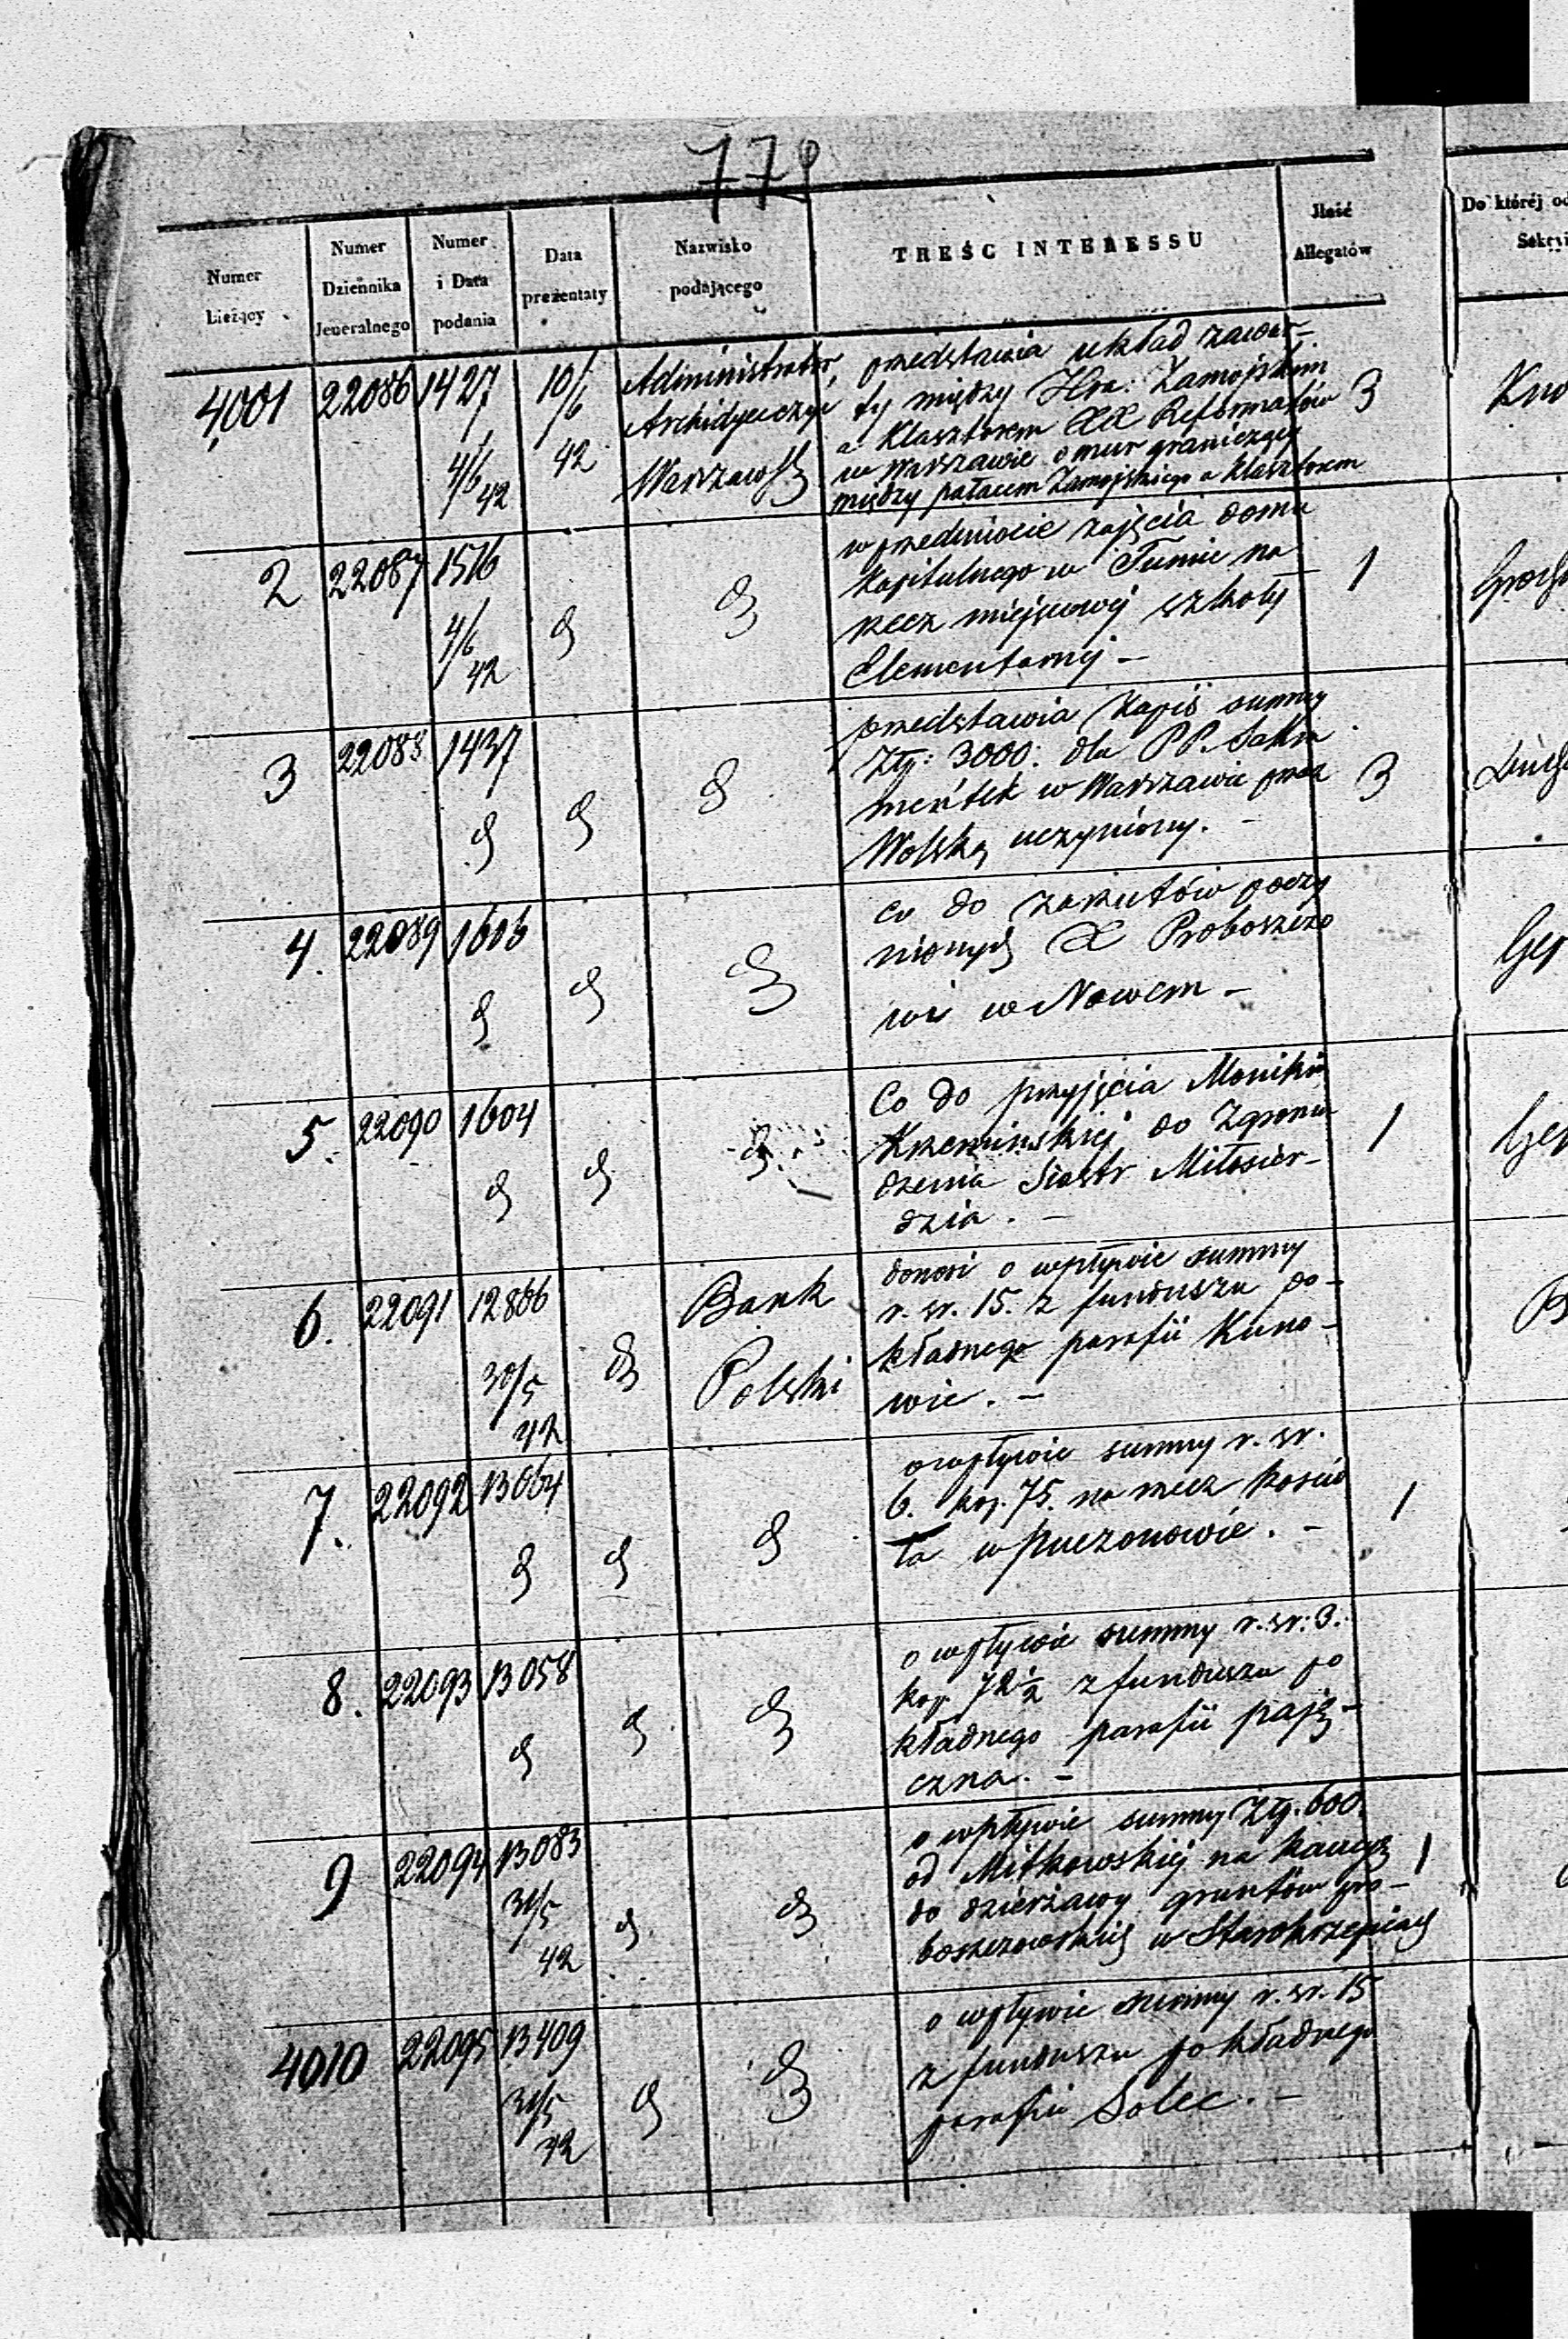 779
Numer Lieżący
Numer Dziennika Jeneralnego
Numer i Data podania
Data prezentaty
Nazwisko podającego
TREŚĆ INTERESSU
Jlość Allegatów
Do któréj od
Sekcyi
4001 22086 1427 4/6 42 10/6 42
Administrator
Archidyecezyi
Warzaws
przedstawia układ zawar-
ty między Hra: Zamojskim
a Klasztorem XX Reformatów
w Warszawie o mur graniczący
między pałacem Zamojskiego a klasztorem
3
2 22087 1516 4/6 42 d d
w przedmiocie zajęcia domu
Kapitulnego w Tumie na
rzecz miejscowej szkoły
Elementarnej –
1
3 22088 1437 d d d
przedstawia zapis summy
Złp: 3000: dla PP. Sakra
mentek w Warszawie przez
Wolską uczyniony. –
3
4. 22089 1603 d d d
co do zarzutów poczy
nionych X Proboszczo
wi w Nowem –
5. 22090 1604 d d d
Co do przyjęcia Moniki
Krzemińskiej do Zgroma
dzenia Siostr Miłosier-
dzia. –
1
6. 22091 12886 30/5 42 d
Bank
Polski
donosi o wpływie summy
r. sr. 15. z funduszu po-
kładnego parafii Kuno-
wie. –
7. 22092 13064 d d d
o wpływie summy r. sr.
6. kop. 75. na rzecz kościo
ła w
1
8. 22093 13058 d d d
o wpływie summy r. sr: 3.
kop. 72 1/2 z funduszu po
kładnego parafii pają-
czna. –
9 22094 13083 31/5 42 d d
o wpływie summy Złp. 600.
od Mitkowskiej na kaucyą
do dzierżawy gruntów pro-
boszczowskich w Starokrzepicach
1
4010 22095 13409 31/5 42 d d
o wpływie summy r. sr. 15
z funduszu pokładnego
parafii Solec. –